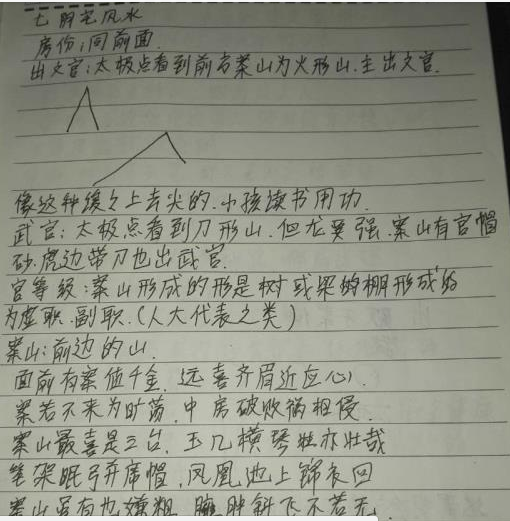 七阴宅风水
房份:同前面.
出文官:太极点看到前方案山为火形山.主出文官.
像这种缓之上去尖的.小孩读书用功.
武官:太极点看到刀形山.但龙要强.案山有官帽
砂.虎边带刀也出武官.
官等级:案山形成的形是树或架的棚形成的
为虚职.副职.(人大代表之类)
案山:前边的山.
面前有案值千金.远喜齐眉近应心.
案若不来为旷荡.中房破败祸相侵.
案山最喜是三台.玉几横琴壮亦壮哉
笔架眠弓并席帽.凤凰池上锦衣回
案山虽有也嫌粗.臃肿斜飞不若无